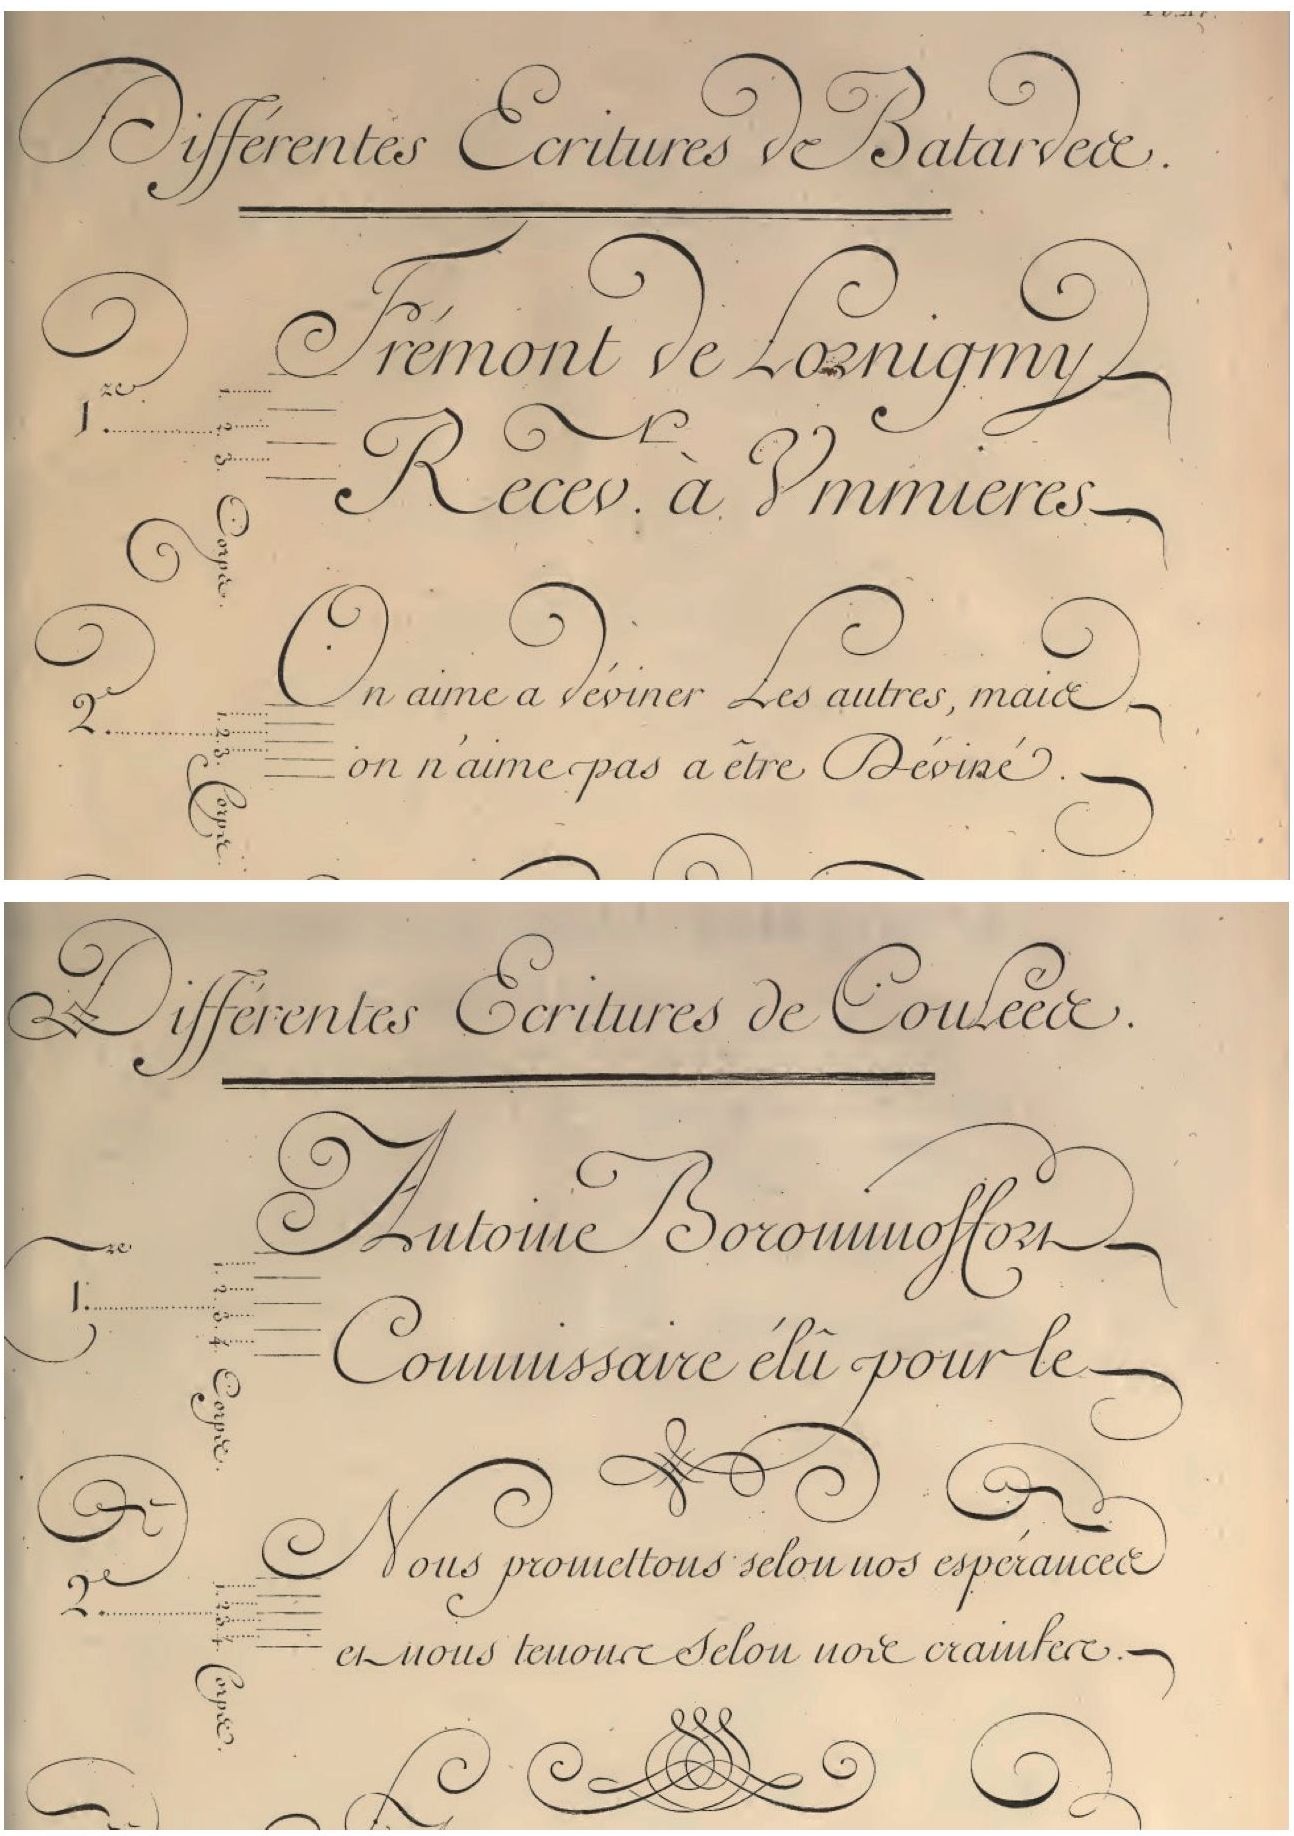 Différentes Ecritures de Batardes.
Frémont de Lornignmy
1.re
1. 2. 3. Corps.
Recev.r à Ymmieres
On aime a déviner Les autres, mais
2.e
1. 2. 3. Corps.
on n'aime pas a être Déviné.
Différentes Ecritures de Coulées.
Antoine Borommoffort
1.re
1. 2. 3. 4. Corps.
Commissaire élû pour le
Nous promettons selon nos espérances
2.e
1. 2. 3. 4. Corps.
et nous tenons selon nos craintes.